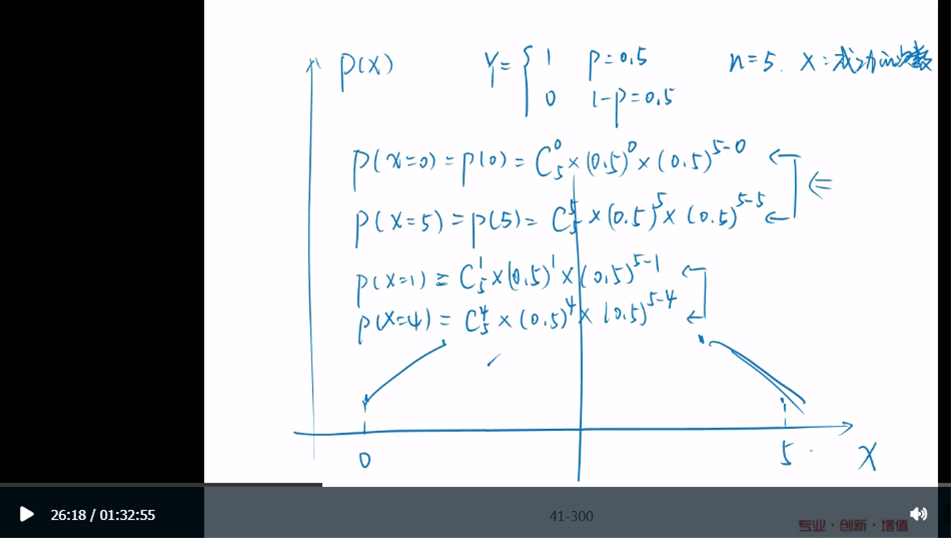 P(X) Y= { 1 p=0.5 n=5. X:成功的次数
0 1-p=0.5
P(X=0)=P(0)=C₅⁰×(0.5)⁰×(0.5)⁵⁻⁰
P(X=5)=P(5)=C₅⁵×(0.5)⁵×(0.5)⁵⁻⁵
P(X=1)=C₅¹×(0.5)¹×(0.5)⁵⁻¹
P(X=4)=C₅⁴×(0.5)⁴×(0.5)⁵⁻⁴
0 5 X
26:18 / 01:32:55 41-300
专业·创新·增值